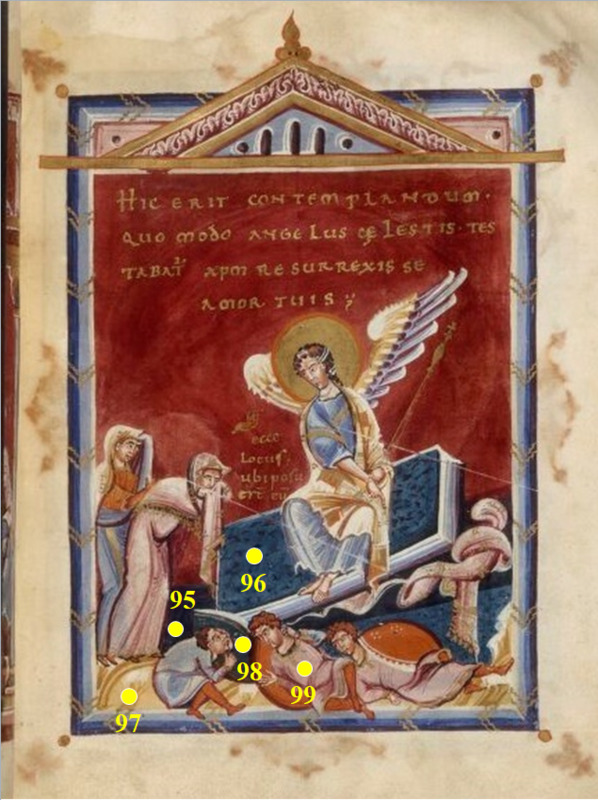 HIC ERIT CONTEMPLANDUM·
QUO MODO ANGELUS CĘLESTIS·TES
TABAT̄ XPM RESURREXISSE
A MORTUIS
ecce
locus·
ubi posu
95
96
98
99
97